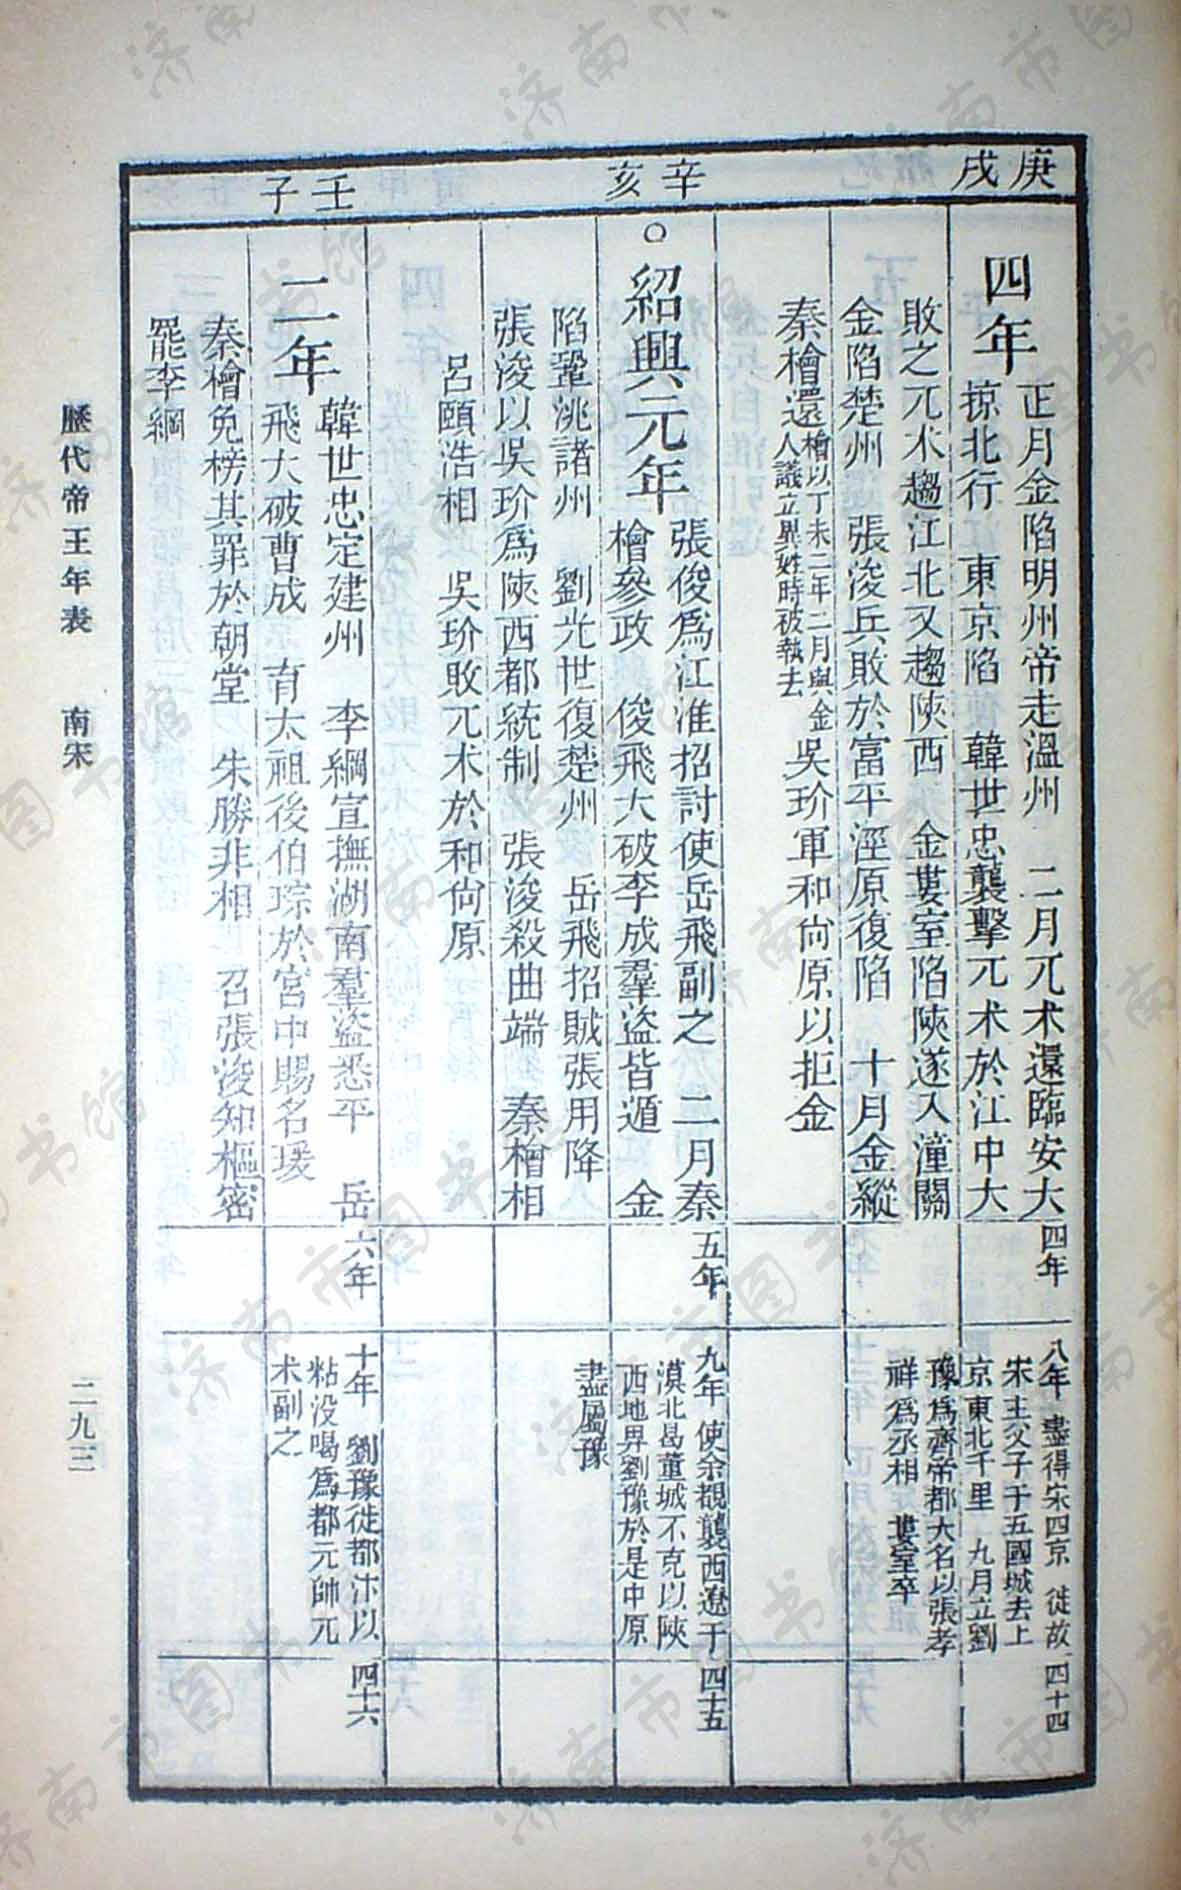 庚戌
四年
正月金陷明州帝走溫州　二月兀术還臨安大
掠北行　東京陷　韓世忠襲擊兀术於江中大
敗之兀术趨江北又趨陝西　金婁室陷陝遂入潼關
金陷楚州　張浚兵敗於富平涇原復陷　十月金縱
秦檜還
檜以丁未二年二月與金
人議立異姓時被執去
吳玠軍和尚原以拒金
四年
八年　盡得宋四京　徙故
宋主父子于五國城去上
京東北千里　九月立劉
豫爲齊帝都大名以張孝
祥爲丞相　婁室卒
四十四
辛亥
○紹興元年
張俊爲江淮招討使岳飛副之　二月秦
檜參政　俊飛大破李成羣盜皆遁　金
陷鞏洮諸州　劉光世復楚州　岳飛招賊張用降
張浚以吳玠爲陝西都統制　張浚殺曲端　秦檜相
呂頤浩相　吳玠敗兀术於和尚原
五年
九年　使余覩襲西遼于
漠北曷董城不克以陝
西地畀劉豫於是中原
盡屬豫
四十五
壬子
二年
韓世忠定建州　李綱宣撫湖南羣盜悉平　岳
飛大破曹成　育太祖後伯琮於宮中賜名瑗
秦檜免榜其罪於朝堂　朱勝非相　召張浚知樞密
罷李綱
六年
十年　劉豫徙都汴以
粘没喝爲都元帥兀
术副之
四十六
歷代帝王年表　南宋
二九三
济南市图书馆